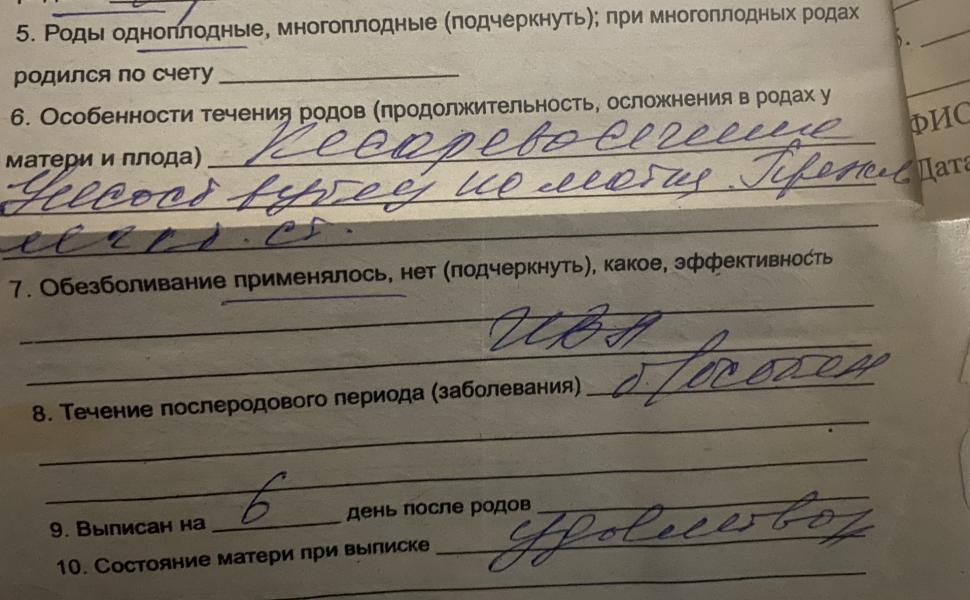 5. Роды одноплодные, многоплодные (подчеркнуть); при многоплодных родах
родился по счету
6. Особенности течения родов (продолжительность, осложнения в родах у
матери и плода) Кесарево сечение
по матц.
7. Обезболивание применялось, нет (подчеркнуть), какое, эффективность
ИВЛ
8. Течение послеродового периода (заболевания)
9. Выписан на 6 день после родов
10. Состояние матери при выписке удовлетвор
ФИО
Дата